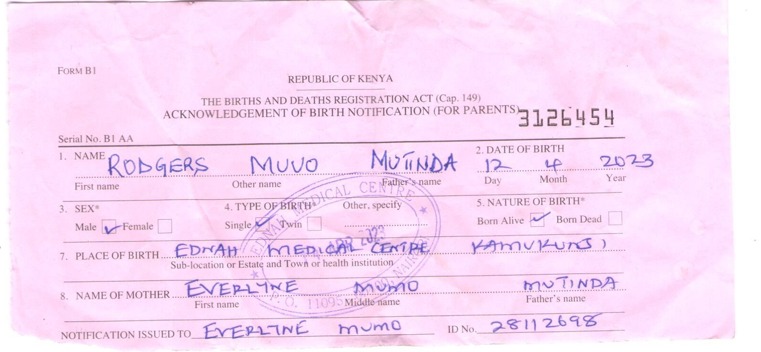 FORM B1
REPUBLIC OF KENYA
THE BIRTHS AND DEATHS REGISTRATION ACT (Cap. 149)
ACKNOWLEDGEMENT OF BIRTH NOTIFICATION (FOR PARENTS) 3126454
Serial No. B1 AA
1. NAME RODGERS MUVO MUTINDA 2. DATE OF BIRTH 12 4 2023
First name Other name Father's name Day Month Year
3. SEX* 4. TYPE OF BIRTH* Other, specify 5. NATURE OF BIRTH*
Male ✓ Female Single ✓ Twin Born Alive ✓ Born Dead
7. PLACE OF BIRTH EDNAH MEDICAL CENTRE KAMUKUNJI
Sub-location or Estate and Town or health institution
8. NAME OF MOTHER EVERLYNE MUMO MUTINDA
First name Middle name Father's name
NOTIFICATION ISSUED TO EVERLYNE MUMO ID No. 28112698
EDNAH MEDICAL CENTRE
2023